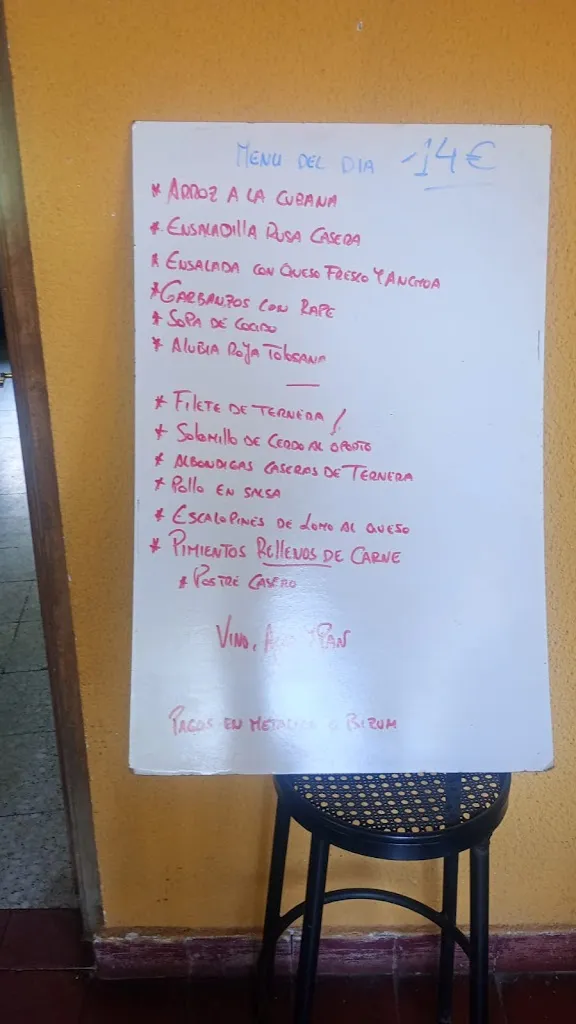 MENU DEL DIA -14€
* ARROZ A LA CUBANA
* ENSALADILLA RUSA CASERA
* ENSALADA CON QUESO FRESCO Y ANCHOA
* GARBANZOS CON RAPE
* SOPA DE COCIDO
* ALUBIA ROJA TOLOSANA
* FILETE DE TERNERA
* SOLOMILLO DE CERDO AL OPORTO
* ALBONDIGAS CASERAS DE TERNERA
* POLLO EN SALSA
* ESCALOPINES DE LOMO AL QUESO
* PIMIENTOS RELLENOS DE CARNE
* POSTRE CASERO
VINO, AGUA Y PAN
PAGOS EN METALICO O BIZUM